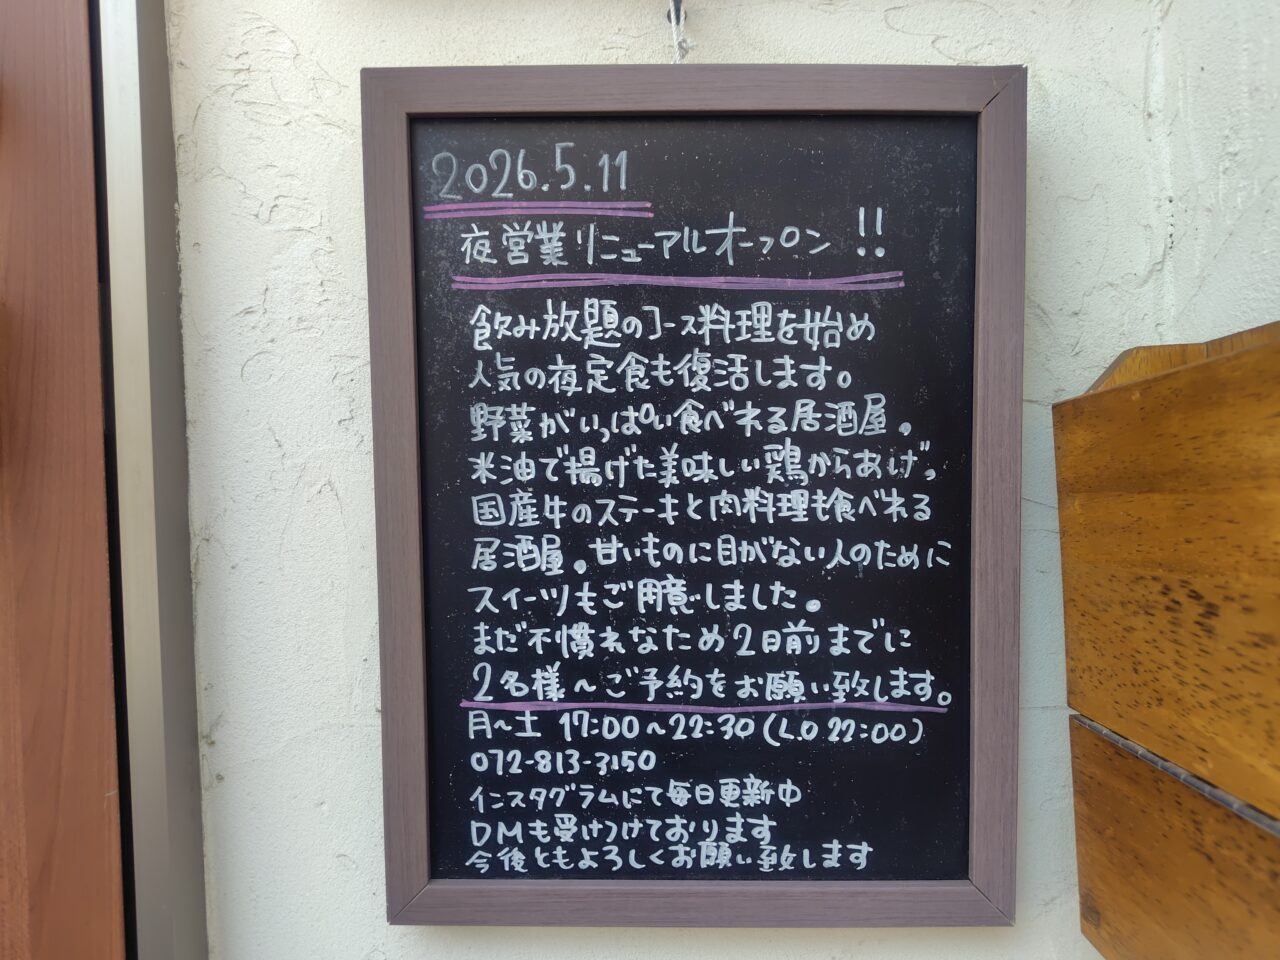 2026.5.11
夜営業リニューアルオープン!!
飲み放題のコース料理を始め
人気の夜定食も復活します。
野菜がいっぱい食べれる居酒屋。
米油で揚げた美味しい鶏からあげ、
国産牛のステーキと肉料理も食べれる
居酒屋。甘いものに目がない人のために
スイーツもご用意しました。
まだ不慣れなため2日前までに
2名様〜ご予約をお願い致します。
月〜土 17:00〜22:30(L.O 22:00)
072-813-3150
インスタグラムにて毎日更新中
DMも受けつけております
今後ともよろしくお願い致します